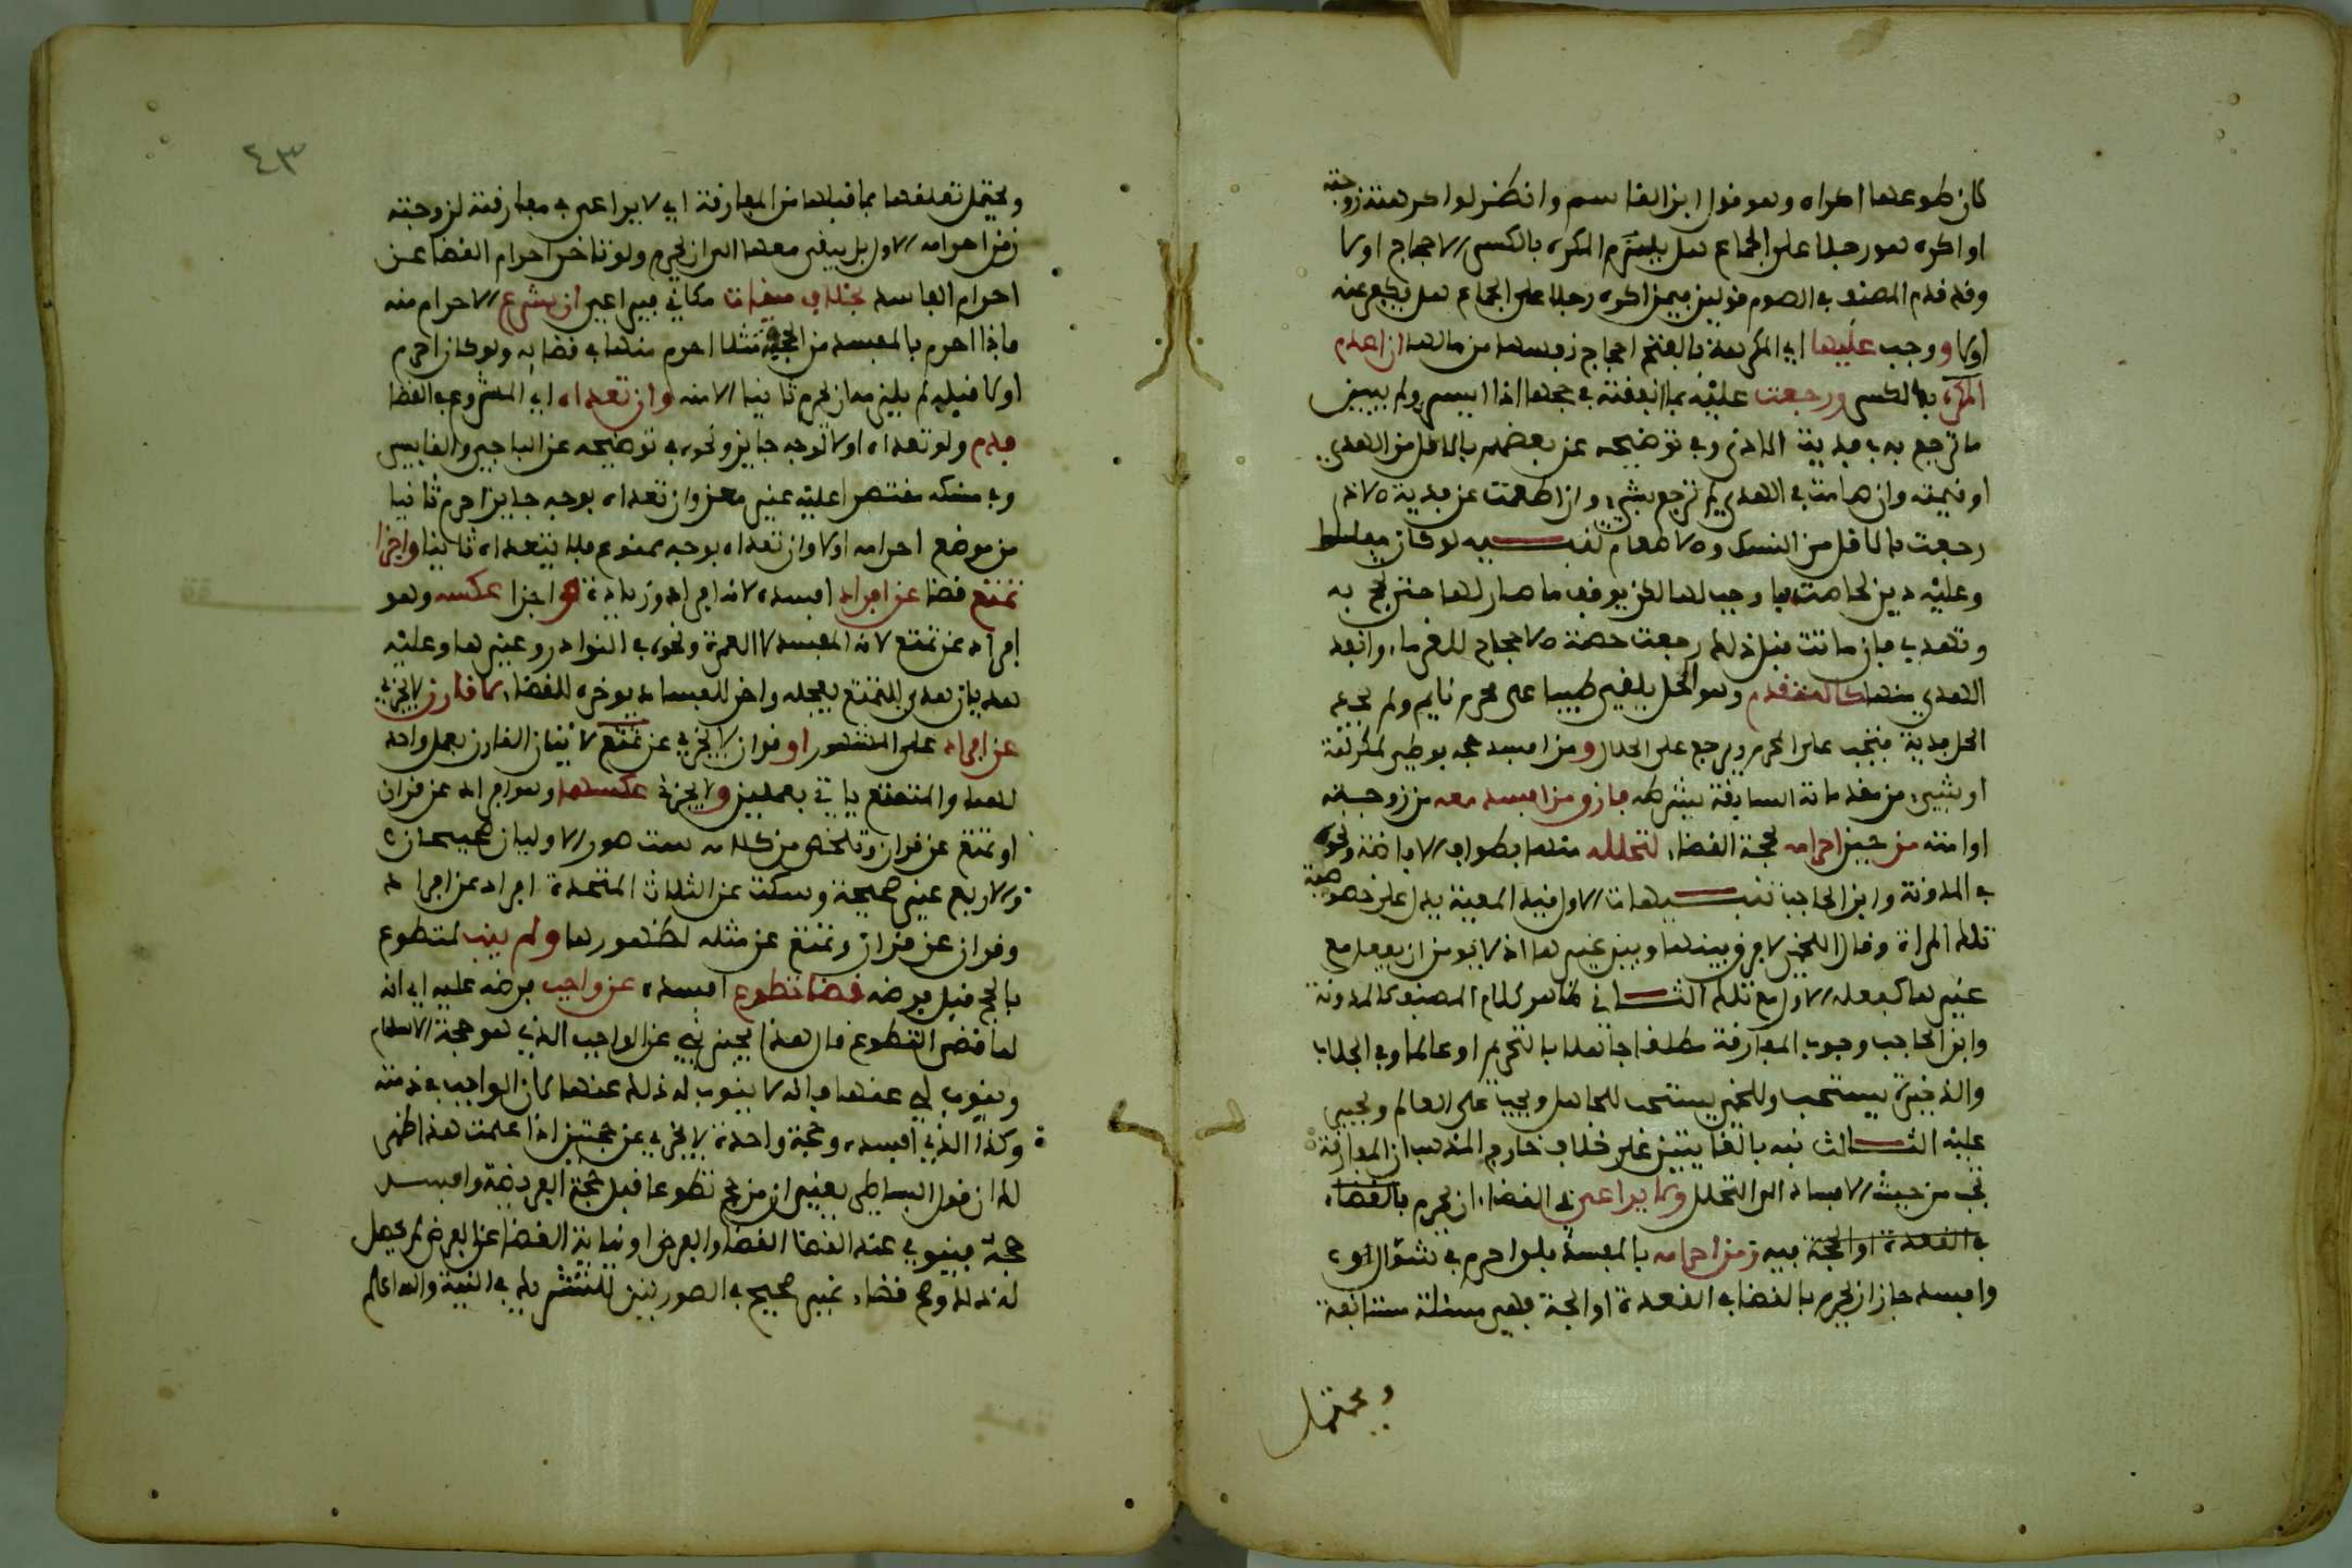 كان طوعها اكراه وهو قول ابن القاسم وانظر لو اكرهته زوجته
او اكره هو رجلا على الجماع هل يلزم المكره بالكسر الاحجاج اولا
وقد قدم المصنف في الصوم قولين فيمن اكره رجلا على الجماع هل يكفر عنه
اولا ووجب عليها اي المكرهة بالفتح احجاج نفسها من مالها ان اعدم
المكره بالكسر ورجعت عليه بما انفقته في حجها اذا ايسر ولم يبين
ما ترجع به في فدية الاذى وفي توضيحه عن بعضهم بالاقل من الهدي
او قيمته وان صامت في الهدي لم ترجع بشيء وان اطعمت عن فدية الاذى
رجعت بالاقل من النسك والاطعام تنبيه لو كان
وعليه دين لحاصت بما وجب لها لكن يوقف ما صار لها حتى تحج به
وتهدي فان ماتت قبل ذلك رجعت حصة الاحجاج للغرماء وانفذ
الهدي منها كالمتقدم وهو الحل يلقي طيبا على محرم نايم ولم يجد
الحل فدية فتجب على المحرم ويرجع على الحلال ومن افسد حجه بوطىء لمكرهة
او بشيء من مقدماته السابقة بشرطه فارق من افسد معه من زوجته
او امته من حين احرامه لحجة القضاء لتحلله منها بطواف الافاضة ونحوه
في المدونة وابن الحاجب تنبيهات الاول قيد المعية يدل على خصوصية
تلك المراة وقال اللخمي لا فرق بينها وبين غيرها اذ لا يؤمن ان يفعل مع
غيرها كفعله الاول مع تلك الثاني ظاهر كلام المصنف كالمدونة
وابن الحاجب وجوب المفارقة مطلقا جاهلا بالتحريم او عالما وفي الجلاب
والذخيرة يستحب وللخمي يستحب للجاهل ويجب على العالم ويجبر
عليه الثالث نبه بالغايتين على خلاف خارج المذهب ان المفارقة
تجب من حيث الافساد الى التحلل ولا يراعى في القضاء ان يحرم بالقضاء
في القعدة او الحجة فيه زمن احرامه بالمفسد فلو احرم في شوال اولا
وافسده جاز ان يحرم بالقضا في القعدة او الحجة فهي مسئلة مستانفة
ويحتمل
٤٣
ويحتمل تعلقها بما قبلها من المفارقة اي لا يراعى في مفارقته لزوجته
زمن احرامه الاول بل يبقى معها الى ان يحرم ولو تاخر احرام القضا عن
احرام الفاسد بخلاف ميقات مكاني فيراعى ان شرع الاحرام منه
فاذا احرم بالمفسد من الجحفة مثلا احرم منها في قضايه ولو كان احرم
اولا قبله لم يلزمه ان يحرم ثانيا الا منه وان تعداه اي المشروع في القضا
فدم ولو تعداه اولا لوجه جايز ونحوه في توضيحه عن الباجي والقابسي
وفي منسكه مقتصرا عليه عن معز وان تعداه بوجه جايز احرم ثانيا
من موضع احرامه اولا وان تعداه بوجه ممنوع فلا يتعداه ثانيا واجزا
تمتع قضا عن افراد افسده لانه افراد وزيادة واجزا عكسه وهو
افراد عن تمتع لانه المفسد لا العمرة ونحوه في النوادر وغيرها وعليه
هديان هدي للتمتع يعجله واخر للفساد يوخره للقضاء لا قارن لا يجزي
عن افراد على المشهور او قران لا يجزي عن تمتع لاتيان القارن بعمل واحد
لهما والمتمتع ياتي بعملين ولا يجزي عكسهما وهو افراد عن قران
او تمتع عن قران وتلخص من كلامه ست صور الاوليان صحيحتان
والاربع غير صحيحة وسكت عن الثلاث المتحدة افراد عن افراد
وقران عن قران وتمتع عن مثله لظهورها ولم ينب لمتطوع
بالحج قبل فرضه قضا تطوع افسده عن واجب فرضه عليه اي انه
لما قضى التطوع قال هذا يجزيني عن الواجب الذي هو حجة الاسلام
وينوب لي عنهما فانه لا ينوب له ذلك عنهما لان الواجب في ذمته
وكذا الذي افسده وحجة واحدة لا تجزي عن حجتين اذا علمت هذا ظهر
لك ان قول البساطي يعني ان من حج تطوعا قبل حجة الفريضة وافسد
حجة فينوي عند القضا القضا والفرض او نيابة القضا عن الفرض لم يحصل
له ذلك وصح قضاءه غير صحيح في الصورتين للتشريك في النية والله اعلم